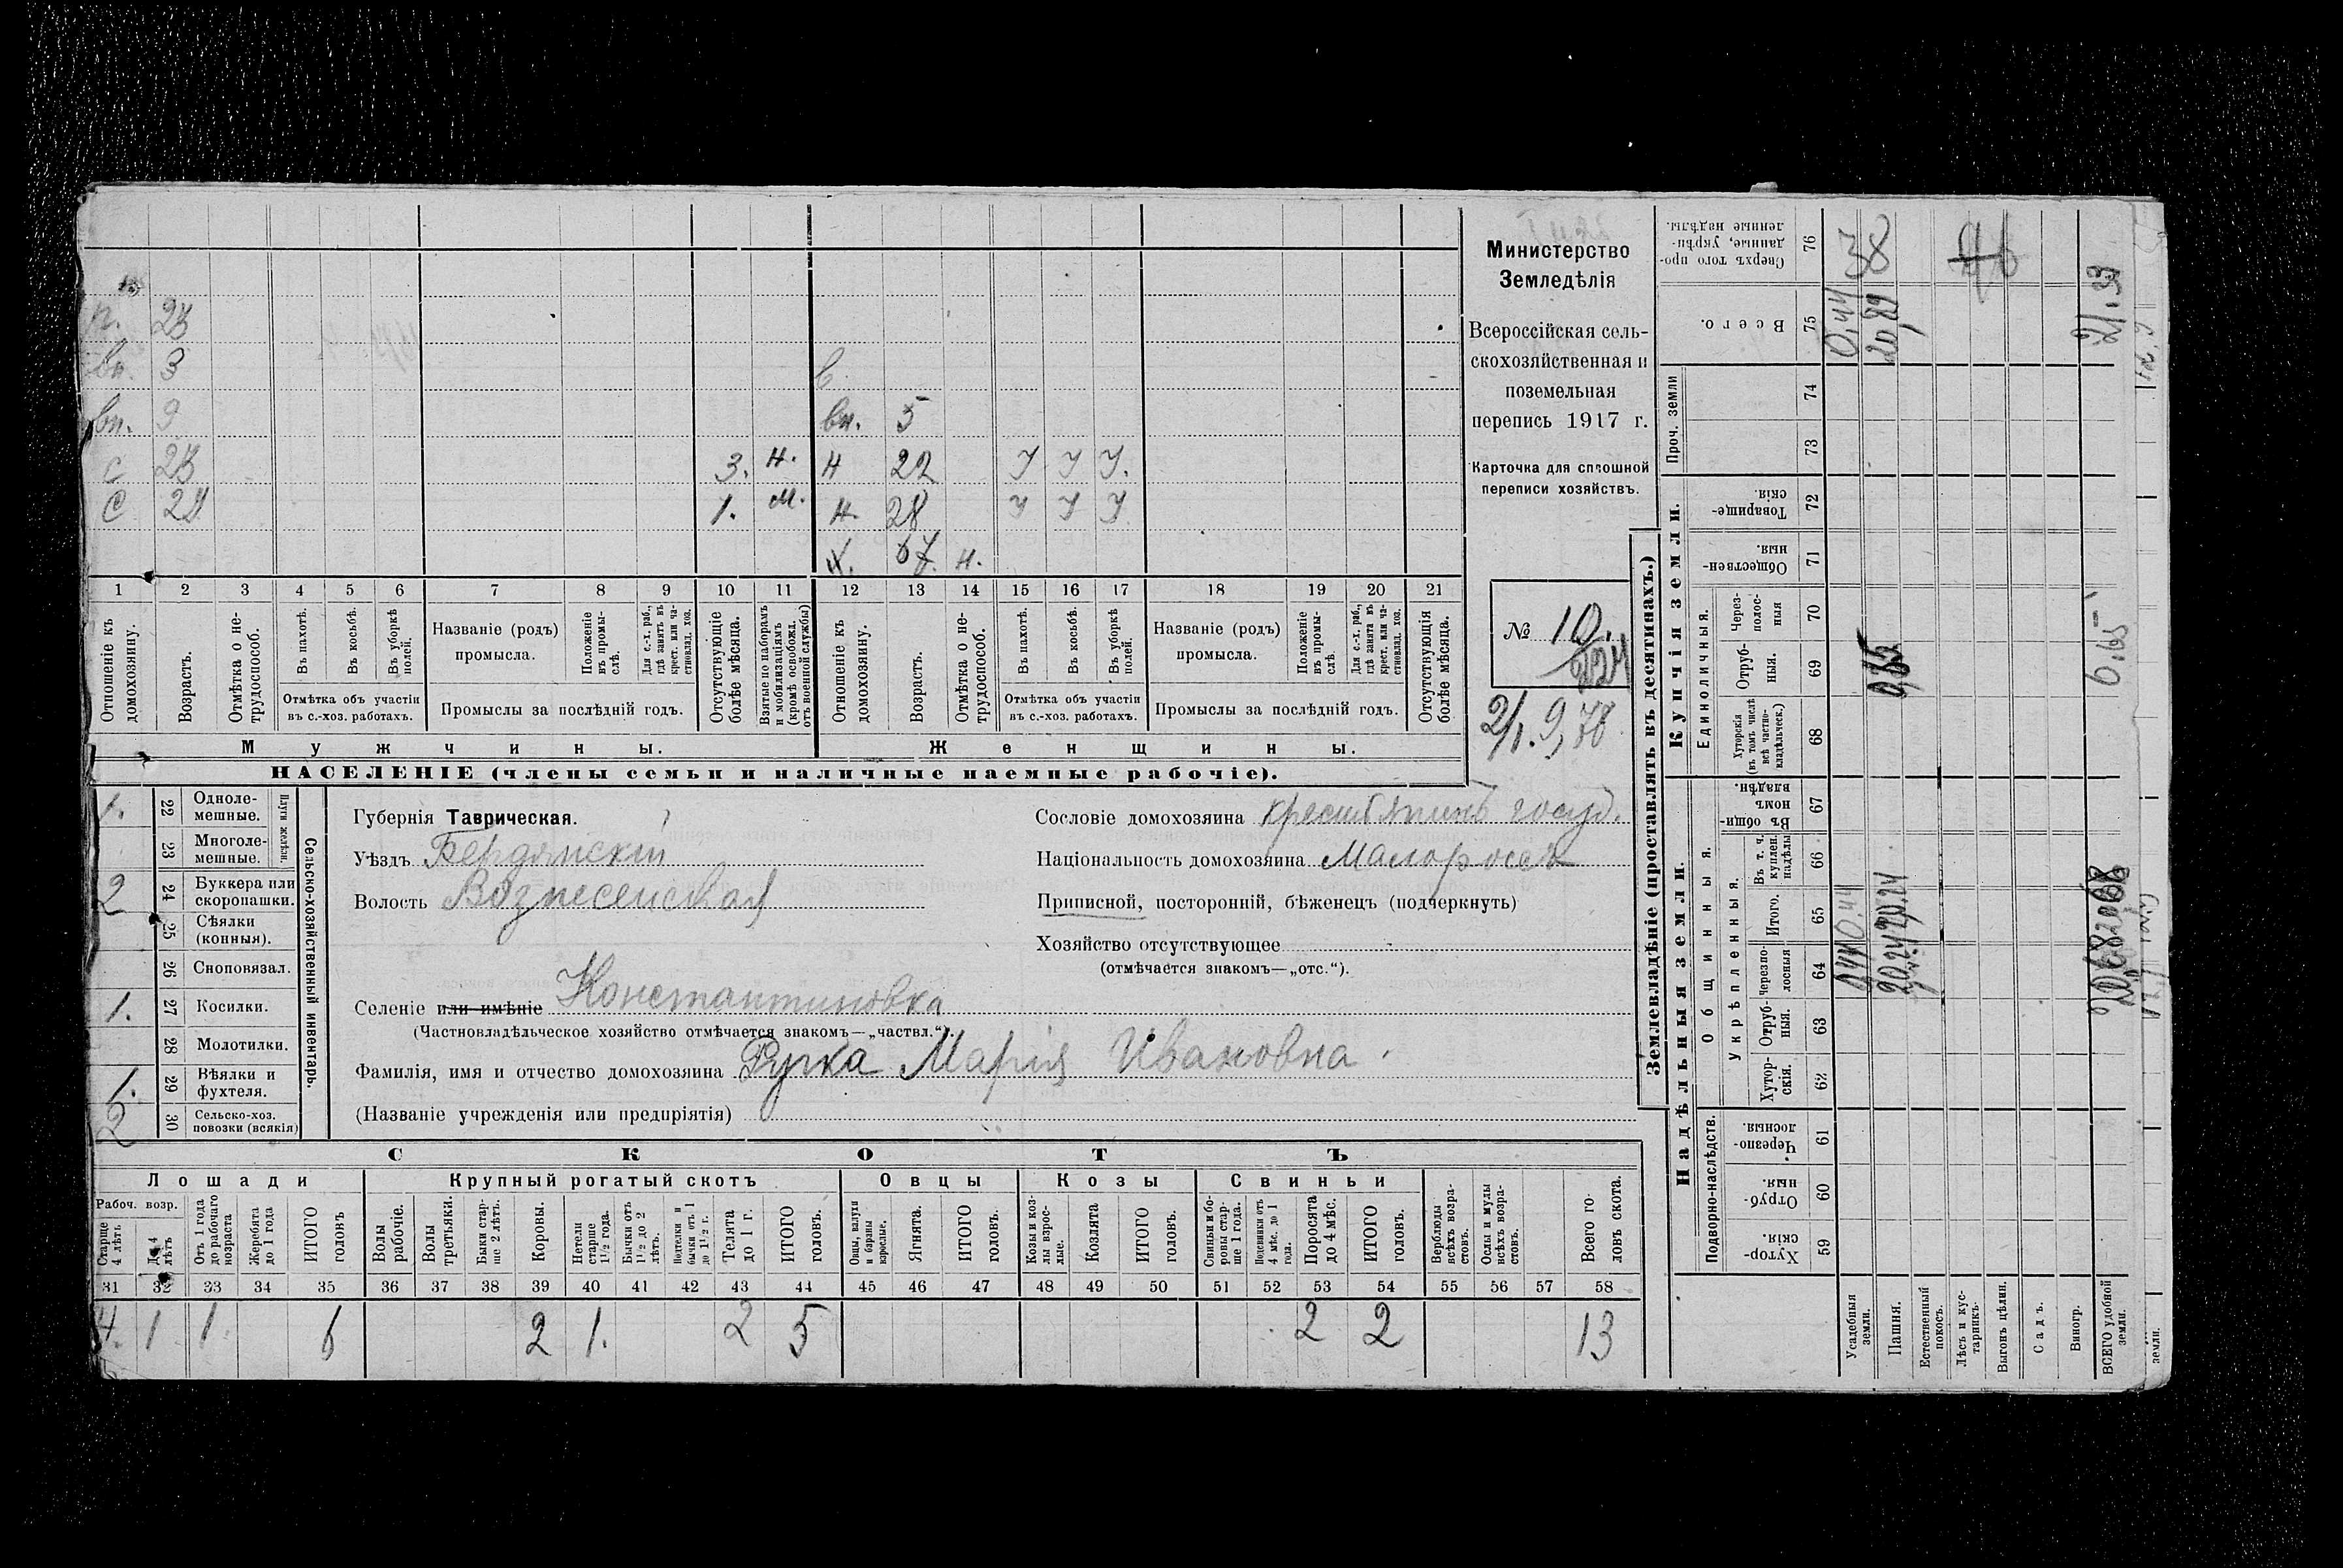 Министерство
Земледѣлія
Всероссійская сель-
скохозяйственная и
поземельная
перепись 1917 г.
Карточка для сплошной
переписи хозяйствъ.
№ 10.
224
п. 23
вн. 3
в.
вн. 9 вн. 5
с 23 3. н. н 22 У У У.
с 24 1. м. н. 28 У У У
х. 67. н.
1 2 3 4 5 6 7 8 9 10 11 12 13 14 15 16 17 18 19 20 21
Отношеніе къ домохозяину.
Возрастъ.
Отмѣтка о не-трудоспособ.
Въ пахотѣ.
Въ косьбѣ.
Въ уборкѣ полей.
Отмѣтка объ участіи въ с.-хоз. работахъ.
Названіе (родъ) промысла.
Положеніе въ промы-слѣ.
Для с.-х. раб., гдѣ занятъ въ крест. или ча-стновлад. хоз.
Промыслы за послѣдній годъ.
Отсутствующіе болѣе мѣсяца.
Взятые по наборамъ и мобилизаціямъ (кромѣ освобожд. отъ военной службы)
Отношеніе къ домохозяину.
Возрастъ.
Отмѣтка о не-трудоспособ.
Въ пахотѣ.
Въ косьбѣ.
Въ уборкѣ полей.
Отмѣтка объ участіи въ с.-хоз. работахъ.
Названіе (родъ) промысла.
Положеніе въ промы-слѣ.
Для с.-х. раб., гдѣ занята въ крест. или ча-стновлад. хоз.
Промыслы за послѣдній годъ.
Отсутствующія болѣе мѣсяца.
Мужчины. Женщины.
НАСЕЛЕНІЕ (члены семьи и наличные наемные рабочіе).
Сельско-хозяйственный инвентарь.
Плуги желѣзн.
1. 22 Одноле-мешные.
23 Многоле-мешные.
2 24 Буккера или скоропашки.
25 Сѣялки (конныя).
26 Сноповязал.
1. 27 Косилки.
28 Молотилки.
1. 29 Вѣялки и фухтеля.
2 30 Сельско-хоз. повозки (всякія)
Губернія Таврическая.
Уѣздъ Бердянскій
Волость Вознесенская
Селеніе или имѣніе Константиновка
(Частновладѣльческое хозяйство отмѣчается знакомъ—„частвл.“).
Фамилія, имя и отчество домохозяина Рупка Марія Ивановна
(Названіе учрежденія или предпріятія)
Сословіе домохозяина крестьянинъ госуд.
Національность домохозяина Малороссъ
Приписной, посторонній, бѣженецъ (подчеркнуть)
Хозяйство отсутствующее
(отмѣчается знакомъ—„отс.“).
СКОТЪ
Лошади Крупный рогатый скотъ Овцы Козы Свиньи
Рабоч. возр.
Старше 4 лѣтъ
До 4 лѣтъ
Отъ 1 года до рабочаго возраста
Жеребята до 1 года
ИТОГО головъ
Волы рабочіе.
Волы третьяки.
Быки стар-ше 2 лѣтъ.
Коровы.
Нетели старше 1 1/2 года.
Бычки отъ 1 1/2 до 2 лѣтъ.
Подтелки и бычки отъ 1 до 1 1/2 г.
Телята до 1 г.
ИТОГО головъ.
Овцы, валухи и бараны взрослые.
Ягнята.
ИТОГО головъ.
Козы и коз-лы взрос-лые.
Козлята
ИТОГО головъ.
Свиньи и бо-ровы стар-ше 1 года.
Подсвинки отъ 4 мѣс. до 1 года.
Поросята до 4 мѣс.
ИТОГО головъ.
Верблюды всѣхъ возра-стовъ.
Ослы и мулы всѣхъ возра-стовъ.
Всего го-ловъ скота.
31 32 33 34 35 36 37 38 39 40 41 42 43 44 45 46 47 48 49 50 51 52 53 54 55 56 57 58
4. 1 1 6 2 1. 2 5 2 2 13
Землевладѣніе (проставлять въ десятинахъ.)
Надѣльныя земли. Купчія земли.
Подворно-наслѣдств.
Хутор-скія. 59
Отруб-ныя. 60
Черезпо-лосныя. 61
Общинныя.
Укрѣпленныя.
Хутор-скія. 62
Отруб-ныя. 63
Черезпо-лосныя 64
Итого. 65
Въ т. ч. куплен. надѣлы 66
Въ общи-номъ владѣн. 67
Единоличныя.
Хуторскія (въ томъ числѣ всѣ частно-владѣльческ.) 68
Отруб-ныя. 69
Через-полос-ныя 70
Обществен-ныя. 71
Товарище-скія. 72
Проч. земли
73 74
Всего. 75
Сверхъ того про-данные, укрѣп-ленные надѣлы. 76
Усадебныя земли. 0,44 38
Пашня. 20.24 20.24 20,89
Естественный покосъ.
Лѣсъ и кус-тарникъ.
Выгонъ цѣлин.
Садъ.
Виногр.
ВСЕГО удобной земли. 0,65 21,33
земли.